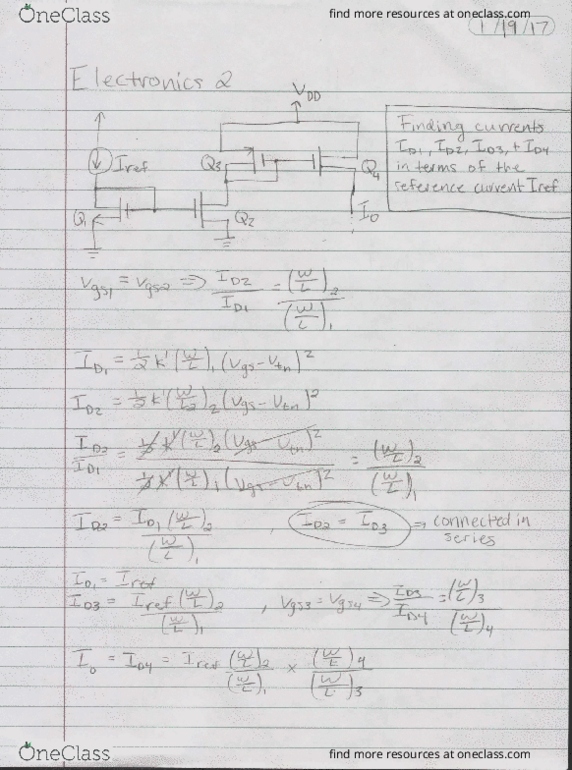 OneClass
find more resources at oneclass.com
1/19/17
Electronics 2
VDD
Finding currents
ID1, ID2, ID3, + ID4
in terms of the
reference current Iref
Iref
Q3
Q4
Q1
Q2
IO
Vgs1 = Vgs2 => ID2/ID1 = (W/L)2/(W/L)1
ID1 = 1/2 k' (W/L)1 (Vgs - Vtn)^2
ID2 = 1/2 k' (W/L)2 (Vgs - Vtn)^2
ID2/ID1 = 1/2 k' (W/L)2 (Vgs - Vtn)^2 / 1/2 k' (W/L)1 (Vgs - Vtn)^2 = (W/L)2/(W/L)1
ID2 = ID1 (W/L)2/(W/L)1 , ID2 = ID3 => connected in series
ID1 = Iref
ID3 = Iref (W/L)2/(W/L)1 , Vgs3 = Vgs4 => ID3/ID4 = (W/L)3/(W/L)4
Io = ID4 = Iref (W/L)2/(W/L)1 x (W/L)4/(W/L)3
OneClass
find more resources at oneclass.com